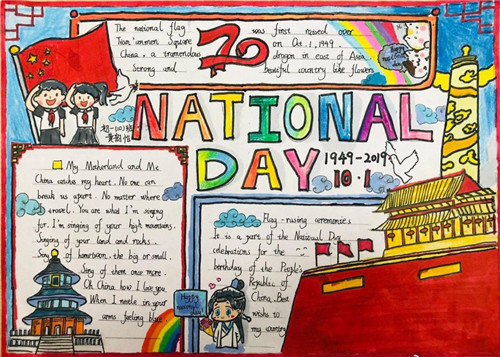 The national flag was first raised over
Tian'anmen Square on Oct.1,1949.
China, a tremendous dragon in east of Asia,
Strong and beautiful country like flowers
70
NATIONAL
DAY
1949-2019
10.1
My Motherland and Me
China washes my heart. No one can
break us apart. No matter where
I travel. You are what I'm singing
for. I'm singing of your high mountains.
Singing of your land and rocks.
Song of hometown, the big or small.
Song of them once more.
Oh China, how I love you.
When I nestle in your
arms fueling blue.
Flag-rasing ceremonies
It is a part of the National Day
celebrations for the
birthday of the People's
Republic of
China. Best
wishes to
my country
Happy
national